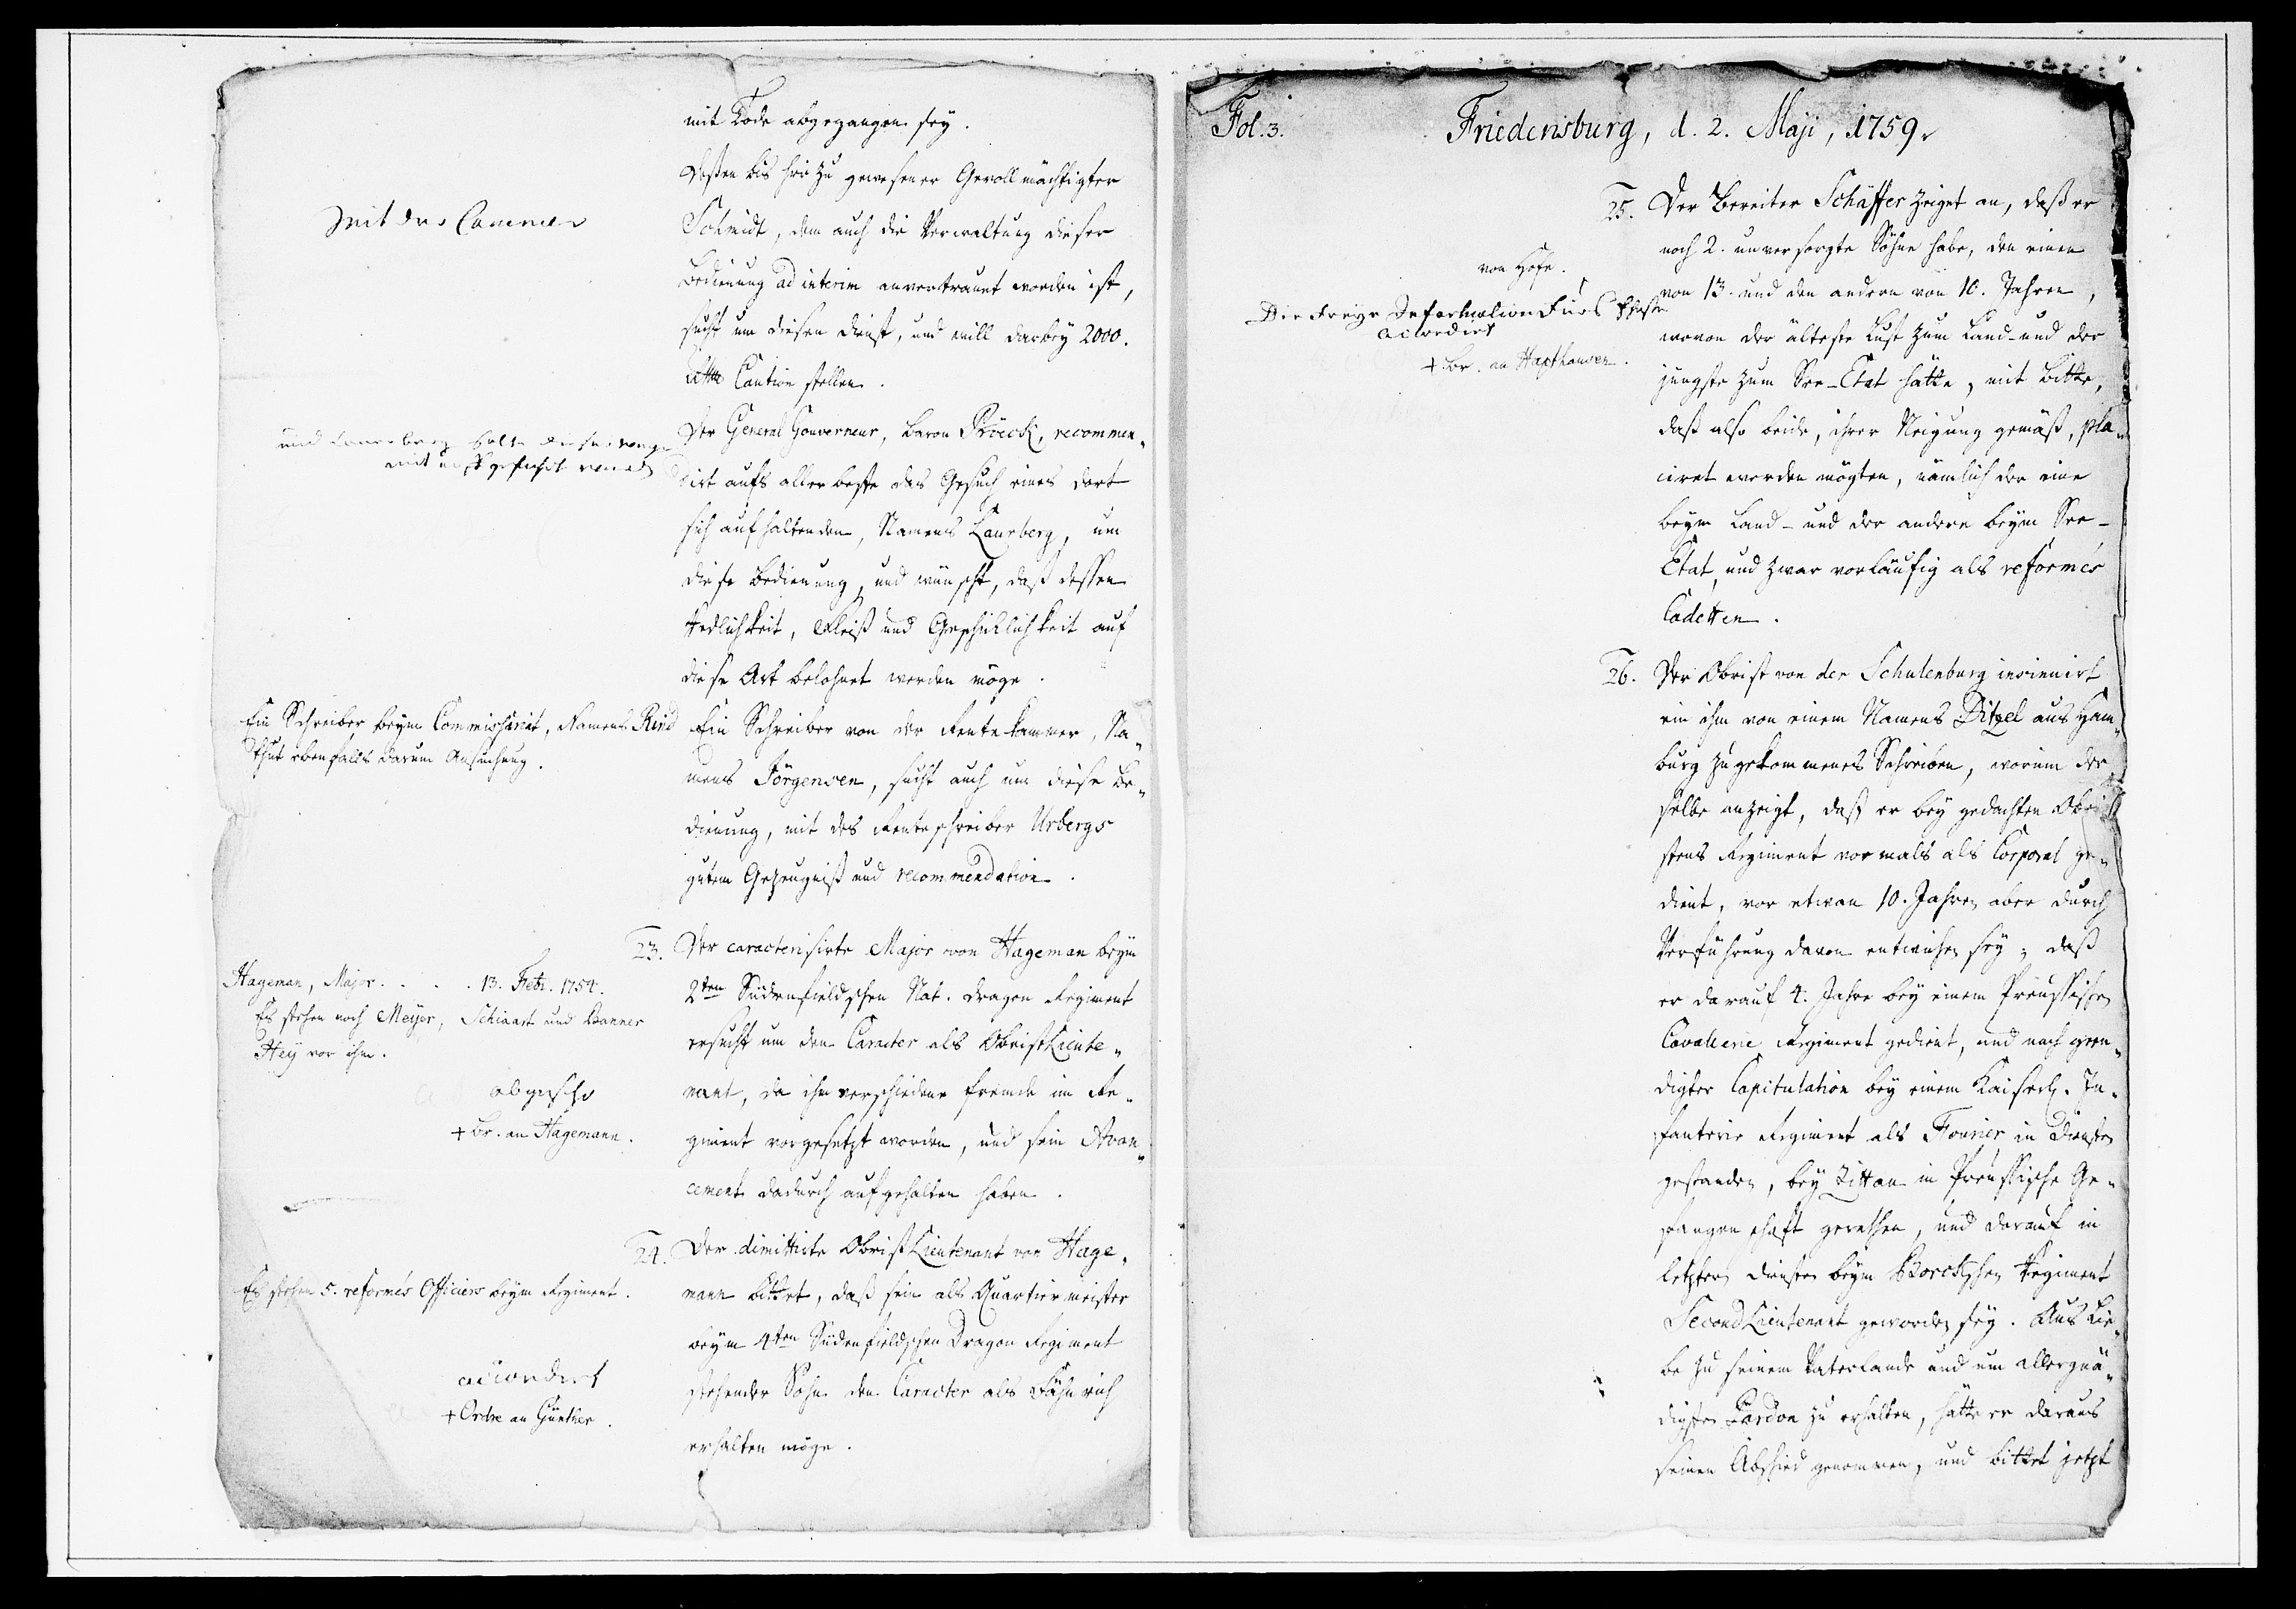 mit Tode abgegangen sey.
Deßen bis hie zu gewesener Gevollmächtigter
Schmidt, dem auch die Verwaltung dieser
Bedienung ad interim anvertrauet worden ist,
sucht um diesen Dienst, und will darbey 2000.
Caution stellen.
mit der Cammer
Der General Gouverneur, Baron Pröck, recommen-
dirt aufs allerbeste das Gesuch eines dort
sich aufhaltenden, Namens Laurberg, um
diese Bedienung, und wünscht, daß dessen
Redlichkeit, Fleiß und Geschicklichkeit auf
diese Art belohnet werden möge.
Ein Schreiber von der Rentekammer, Na-
mens Jörgensen, sucht auch um diese Be-
dienung, mit des Renteschreiber Urbergs
gutem Gezeugniß und recommendation.
Ein Schreiber beym Commissariat, Namens Rind
thut ebenfalls darum Ansuchung.
23. Der caracterisirte Major von Hageman beym
2ten Südenfieldschen Nat. Dragon Regiment
ersucht um den Caracter als Obristlieute-
nant, da ihm verschiedene fremde im Re-
giment vorgesetzt worden, und sein Avan-
cement dadurch aufgehalten haben.
Hageman, Major . . . . 13. Febr. 1754.
Es stehen noch Meyer, Schiaart und Banner
Hey vor ihm.
abgeschl
+ Br. an Hagemann.
24. Der dimittirte Obristlieutenant von Hage-
mann bittet, daß sein als Quartiermeister
beym 4ten Südenfieldschen Dragon Regiment
stehender Sohn den Caracter als Fähnrich
erhalten möge.
Es stehen 5. reformés Officiers beym Regiment.
accordirt
+ Ordre an Günther.
Fol. 3.
Friedensburg, d. 2. Maji, 1759.
25. Der Bereiter Schäffer zeiget an, daß er
noch 2. unversorgte Söhne habe, den einen
von 13. und den andern von 10. Jahren,
wovon der älteste Lust zum Land- und der
jüngste zum See-Etat hätte, mit Bitte,
daß also beide, ihrer Neigung gemäß, pla-
ciret werden mögten, nämlich der eine
beym Land- und der andere beym See-
Etat, und zwar vorläufig als reformés
Cadetten.
von Hofe.
Die Freye Information fürs
accordirt
+ Br. an Haxthausen.
26. Der Obrist von der Schulenburg insinuirt
ein ihm von einem Namens Ditzel aus Ham-
burg zugekommenes Schreiben, worinn der
selbe anzeigt, daß er bey gedachten Obri-
stens Regiment vormals als Corporal ge-
dient, vor etwan 10. Jahren aber durch
Verführung davon entwichen sey; daß
er darauf 4. Jahre bey einem Preussischen
Cavallerie Regiment gedient, und nach geen-
digter Capitulation bey einem Kaiserl. In-
fanterie Regiment als Fourier in Diensten
gestanden, bey Zittau in Preussische Ge-
fangenschaft gerathen, und darauf in
letztern Diensten beym Borckschen Regiment
Second Lieutenant geworden sey. Aus Lie-
be zu seinem Vaterlande und um allergnä-
digsten Pardon zu erhalten, hätte er daraus
seinen Abschied genommen, und bittet jetzt